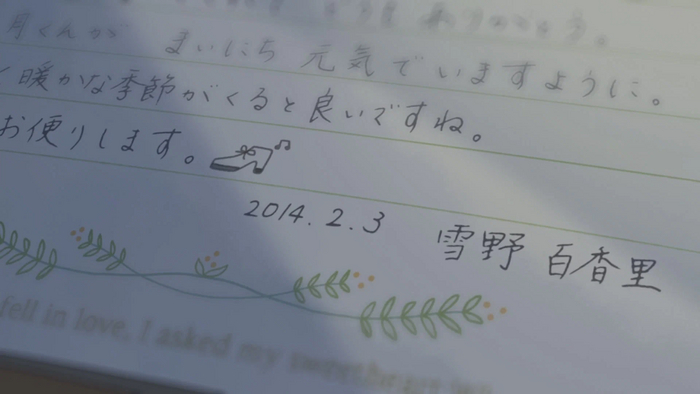 月くんが まいにち 元気でいますように。
く暖かな季節がくると良いですね。
お便りします。
2014.2.3 雪野 百香里
fell in love, I asked my sweetheart